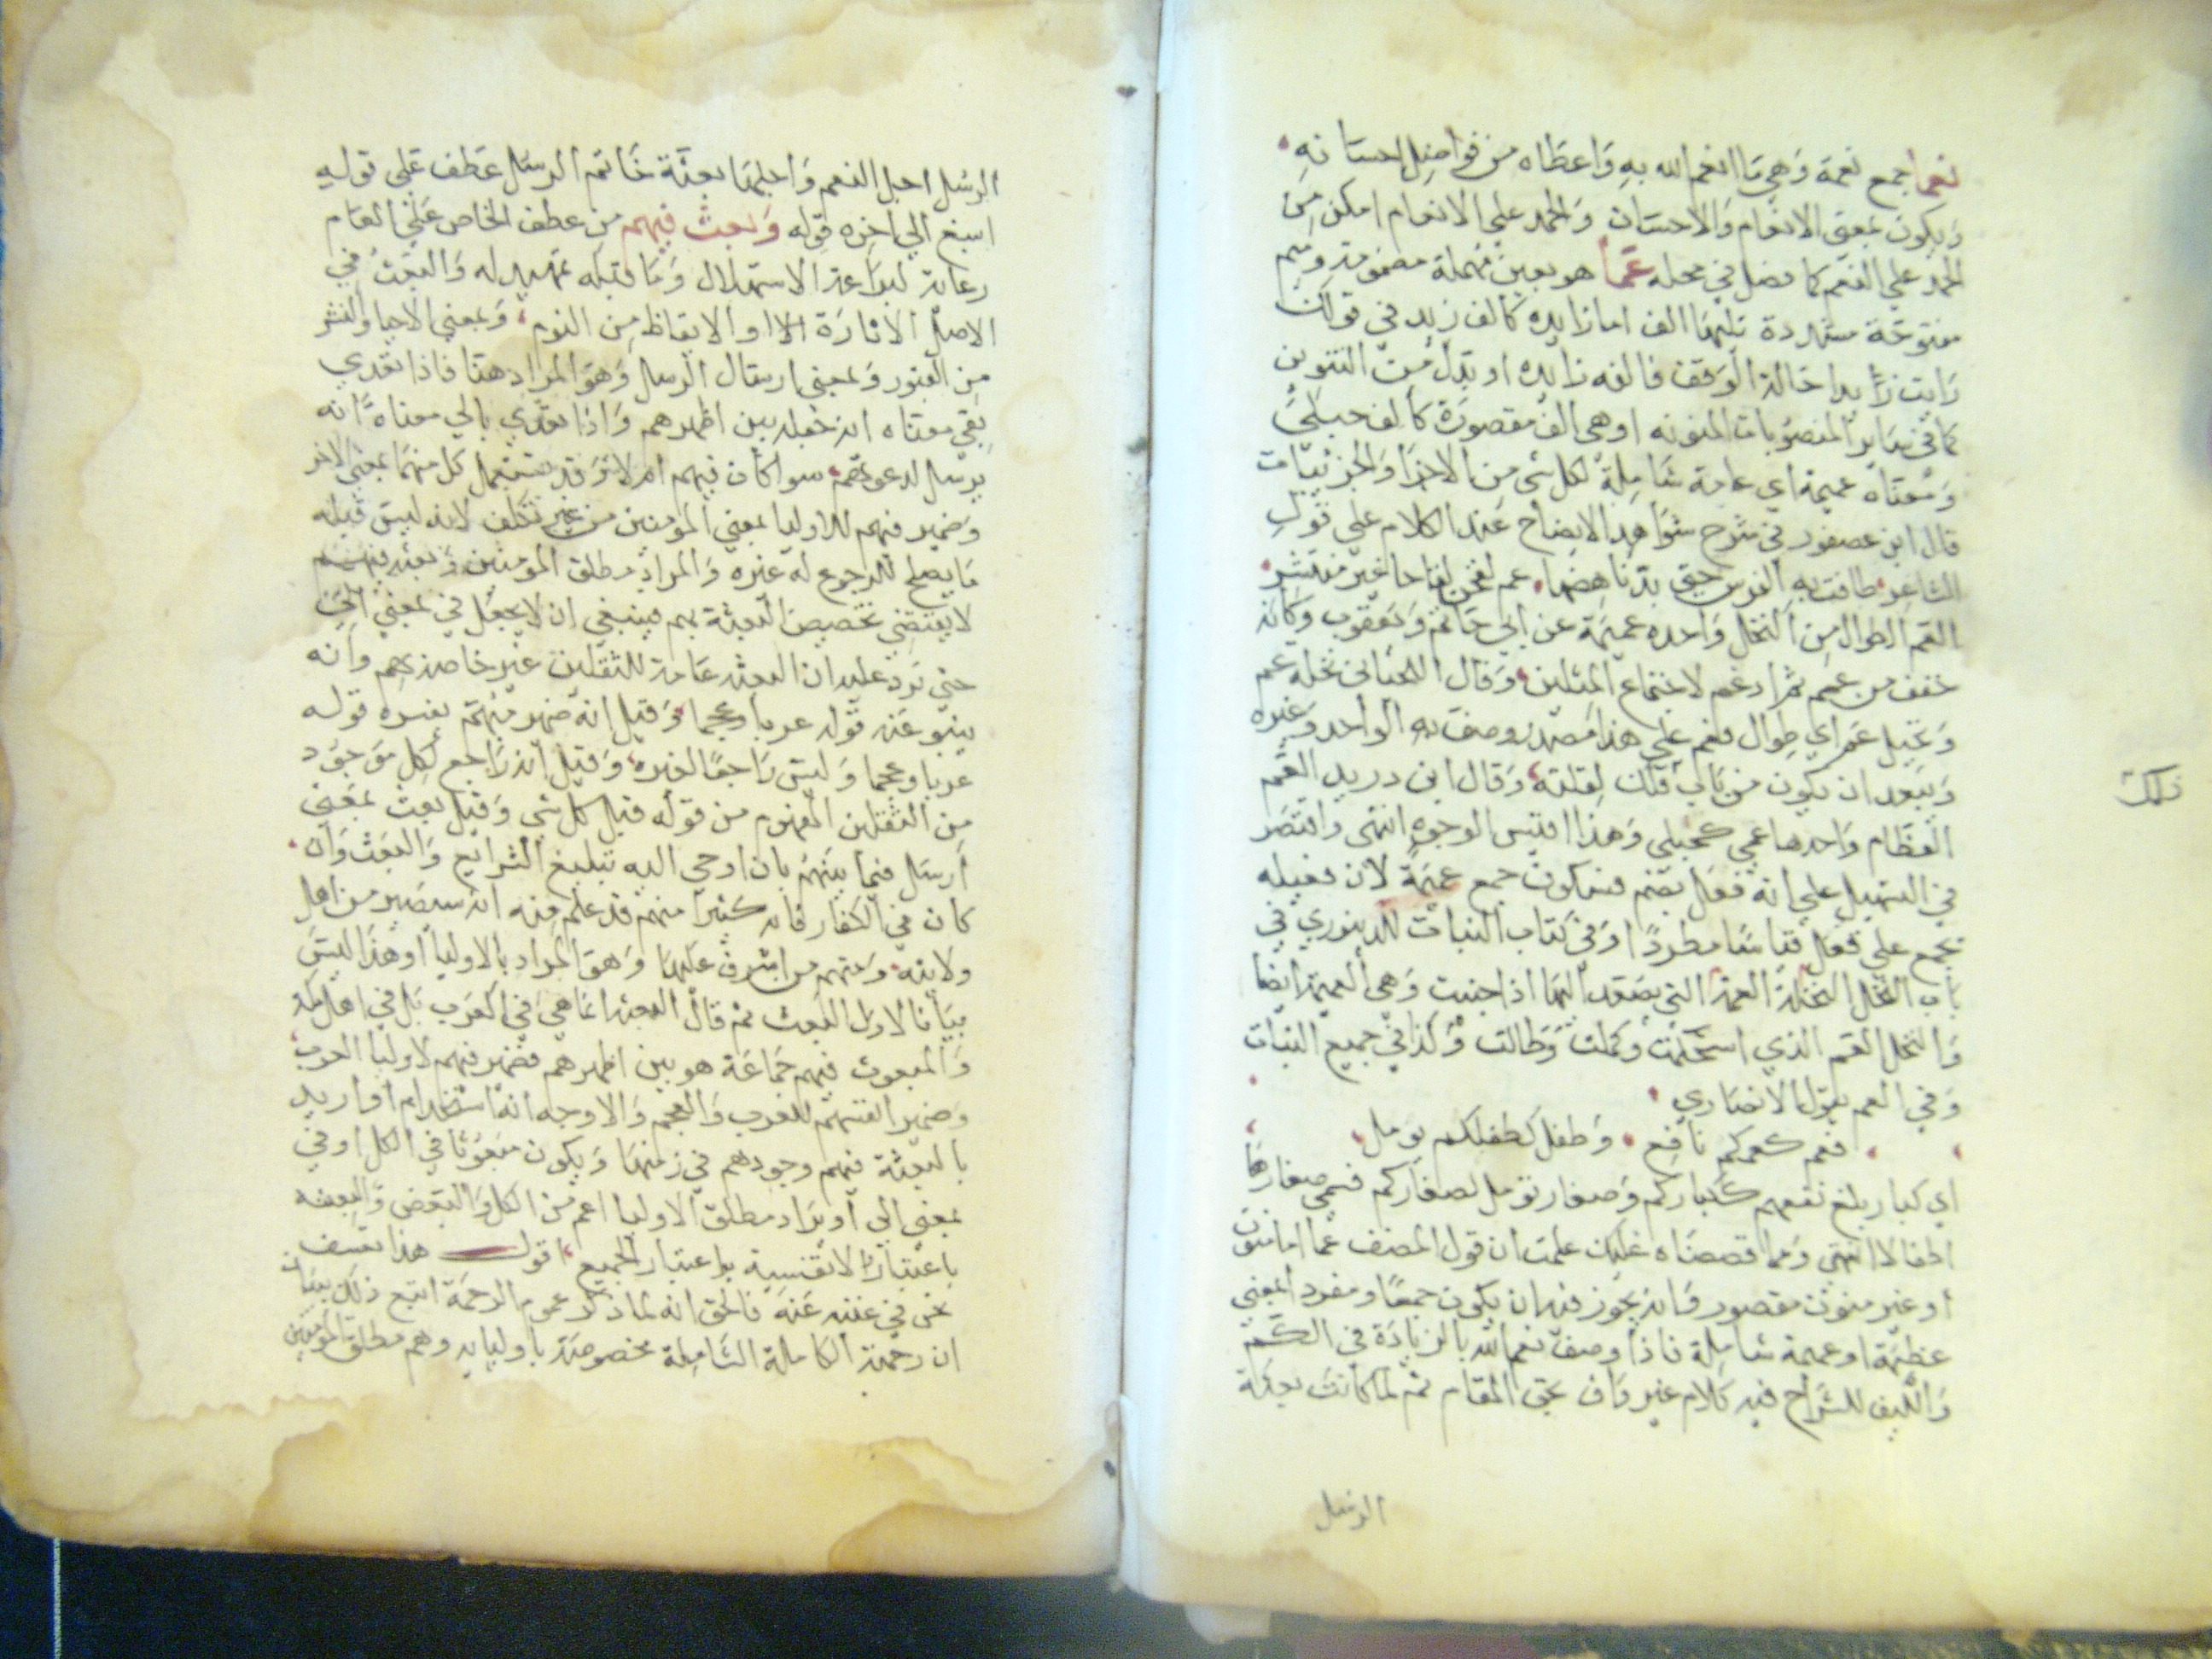 نعما جمع نعمة وهي ما انعم الله به واعطاه من فواضل احسانه
ويكون بمعنى الانعام والاحسان والحمد علي الانعام امكن من
الحمد علي النعم كما فصل في محله عما هو بعين مهملة مضمومة وميم
مفتوحة مشددة تليها الف اما زايده كالف زيد في قولك
رايت زيدا حالة الوقف فالفه زايده او بدل من التنوين
كما في ساير المنصوبات المنونه او هي الف مقصورة كالف حبلى
ومعناه عميمة اي عامة شاملة لكل شي من الاجزا والجزئيات
قال ابن عصفور في شرح شواهد الايضاح عند الكلام علي قول
الشاعر طافت به الفرس حتى بذ ناهضها عم لقحن لقاحا غير منتشر
العم الطوال من النخل واحده عميمة عن ابي حاتم ويعقوب وكانه
خفف من عمم ثم ادغم لاجتماع المثلين وقال اللحياني نخلة عم
ونخيل عم اي طوال فعم علي هذا مصدر وصف به الواحد وغيره
ويبعد ان يكون من باب فلك لقلته وقال ابن دريد العم
العظام واحدها عمى كحبلى وهذا اقيس الوجوه انتهى واقتصر
في التسهيل علي انه فعل بضم فسكون جمع عميمة لان فعيله
تجمع على فعل قياسا مطردا وفي كتاب النبات للدينوري في
باب النخل النخلة العمة التي يصعد اليها اذا جنيت وهي العميمة ايضا
والنخل العم الذي استحكمت وكملت وطالت وكذا في جميع النبات
وفي العم يقول الانصاري
فعم كعمكم نافع وطفل كطفلكم يومل
اي كبار بلغ نفعهم ككباركم وصغار تومل لصغاركم فسمى صغارها
اطفالا انتهى ومما قصصناه عليك علمت ان قول المصنف عما اما منون
او غير منون مقصور وانه يجوز فيه ان يكون جمعا ومفرد بمعنى
عظيمة او عميمة شاملة فاذا وصف نعم الله بالزيادة في الكم
والكيف للشراح فيه كلام غير واف بحق المقام ثم لما كانت بعثة
الرسل
الرسل اجل النعم واجلها بعثة خاتم الرسل عطف علي قوله
اسبغ الي اخره قوله وبعث فيهم من عطف الخاص علي العام
رعاية لبراعة الاستهلال وما قبله تمهيد له والبعث في
الاصل الاثارة الا او الايقاظ من النوم وبمعني الاحيا والنشر
من القبور وبمعني ارسال الرسل وهو المراد هنا فاذا تعدي
بفي معناه انه جعله بين اظهرهم واذا تعدي بالي معناه انه
يرسل لدعوتهم سوا كان فيهم ام لا وقد يستعمل كل منهما بمعني الاخر
وضمير فيهم للاوليا بمعني المومنين من غير تكلف لانه ليس قبله
ما يصلح للرجوع له غيره والمراد مطلق المومنين وبعثه فيهم
لا يقتضي تخصيص البعثة بهم فينبغي ان لا يجعل في بمعني الي
حتي يرد عليه ان البعثه عامة للثقلين غير خاصة بهم وانه
ينبو عنه قوله عربا وعجما وقيل انه ضمير مبهم يفسره قوله
عربا وعجما وليس راجعا لغيره وقيل انه راجع لكل موجود
من الثقلين المفهوم من قوله قبل كل شي وقيل بعث بمعني
ارسل فيما بينهم بان اوحي اليه تبليغ الشرايع والبعث وان
كان في الكفار فانه كثيرا منهم قد علم منه انه سيصير من اهل
ولايته ومنهم من اشرف عليها وهو المراد بالاوليا او هذا ليس
بيانا لاول البعث ثم قال البعثه انما هي في العرب بل في اهل مكه
والمبعوث فيهم جماعة هو بين اظهرهم فضمير فيهم لاوليا العرب
وضمير انفسهم للعرب والعجم والاوجه انه استخدام او اريد
بالبعثة فيهم وجودهم في زمنها ويكون مبعوثا في الكل او في
بمعني الي او يراد مطلق الاوليا اعم من الكل والبعض والبعثه
باعتبارها لا بقتسيه بواعتبار الجميع اقول هذا تعسف
نحن في غنية عنه فالحق انه لما ذكر عموم الرحمة اتبع ذلك ببيان
ان رحمته الكاملة الشاملة مخصوصة باوليايه وهم مطلق المومنين